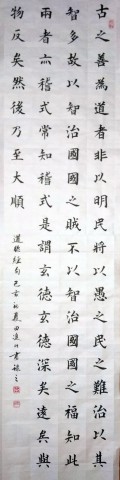 古之善為道者非以明民將以愚之民之難治以其
智多故以智治國國之賊不以智治國國之福知此
兩者亦稽式常知稽式是謂玄德玄德深矣遠矣與
物反矣然後乃至大順
道德經句